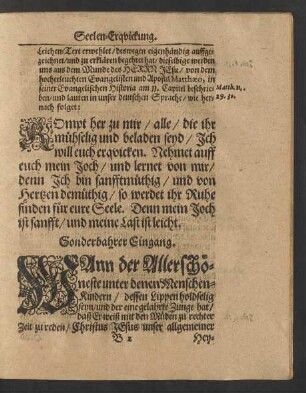 Seelen-Erqvickung.
Leichen-Text erwehlet/ deswegen eigenhändig auffge-
zeichnet/ und zu erklären begehret hat/ dieselbige werden
uns aus dem Munde des HERRN JEsu/ von dem
hocherleuchten Evangelisten und Apostel Matthæo, in
seiner Evangelischen Historia am 11. Capitel beschrie-
Matth. 11,
ben/ und lauten in unser deutschen Sprache/ wie her-
29. 30.
nach folget:
KOmpt her zu mir/ alle/ die ihr
mühselig und beladen seyd/ Ich
will euch erqvicken. Nehmet auff
euch mein Joch/ und lernet von mir/
denn Ich bin sanfftmüthig/ und von
Hertzen demüthig/ so werdet ihr Ruhe
finden für eure Seele. Denn mein Joch
ist sanfft/ und meine Last ist leicht.
Sonderbahrer Eingang.
WAnn der Allerschö-
neste unter denen Menschen-
Kindern/ dessen Lippen holdselig
seyn/ und der eine gelährte Zunge hat/
daß Er weiß mit den Müden zu rechter
Zeit zu reden/ Christus JEsus unser allgemeiner
B 2
Hey-